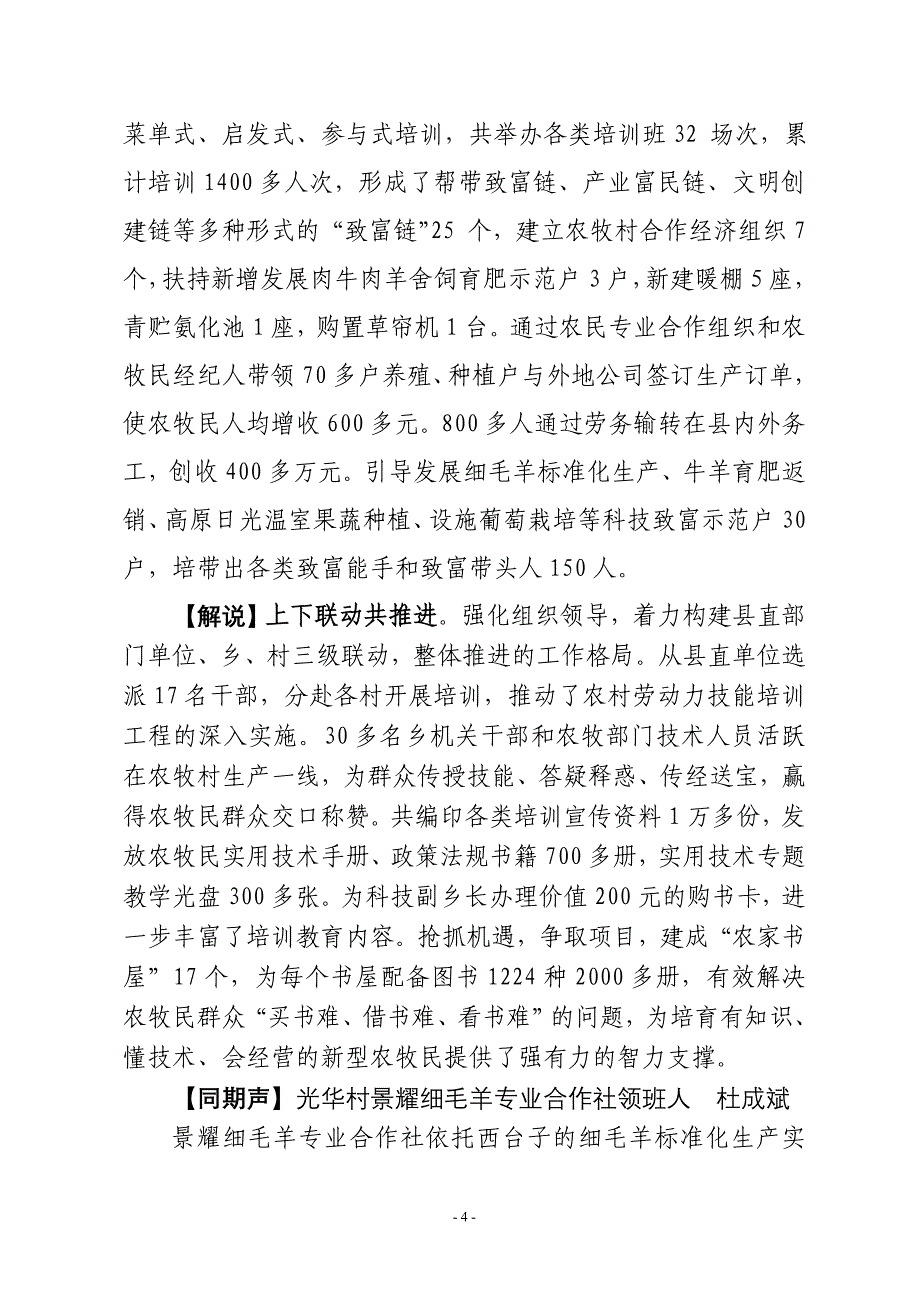 菜单式、启发式、参与式培训，共举办各类培训班 32 场次，累
计培训 1400 多人次，形成了帮带致富链、产业富民链、文明创
建链等多种形式的“致富链”25 个，建立农牧村合作经济组织 7
个，扶持新增发展肉牛肉羊舍饲育肥示范户 3 户，新建暖棚 5 座，
青贮氨化池 1 座，购置草帘机 1 台。通过农民专业合作组织和农
牧民经纪人带领 70 多户养殖、种植户与外地公司签订生产订单，
使农牧民人均增收 600 多元。800 多人通过劳务输转在县内外务
工，创收 400 多万元。引导发展细毛羊标准化生产、牛羊育肥返
销、高原日光温室果蔬种植、设施葡萄栽培等科技致富示范户 30
户，培带出各类致富能手和致富带头人 150 人。
【解说】上下联动共推进。强化组织领导，着力构建县直部
门单位、乡、村三级联动，整体推进的工作格局。从县直单位选
派 17 名干部，分赴各村开展培训，推动了农村劳动力技能培训
工程的深入实施。30 多名乡机关干部和农牧部门技术人员活跃
在农牧村生产一线，为群众传授技能、答疑释惑、传经送宝，赢
得农牧民群众交口称赞。共编印各类培训宣传资料 1 万多份，发
放农牧民实用技术手册、政策法规书籍 700 多册，实用技术专题
教学光盘 300 多张。为科技副乡长办理价值 200 元的购书卡，进
一步丰富了培训教育内容。抢抓机遇，争取项目，建成“农家书
屋”17 个，为每个书屋配备图书 1224 种 2000 多册，有效解决
农牧民群众“买书难、借书难、看书难”的问题，为培育有知识、
懂技术、会经营的新型农牧民提供了强有力的智力支撑。
【同期声】光华村景耀细毛羊专业合作社领班人　杜成斌
景耀细毛羊专业合作社依托西台子的细毛羊标准化生产实
- 4 -